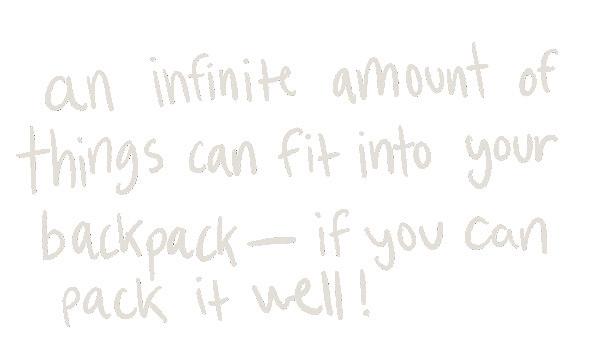 an infinite amount of
things can fit into your
backpack — if you can
pack it well!